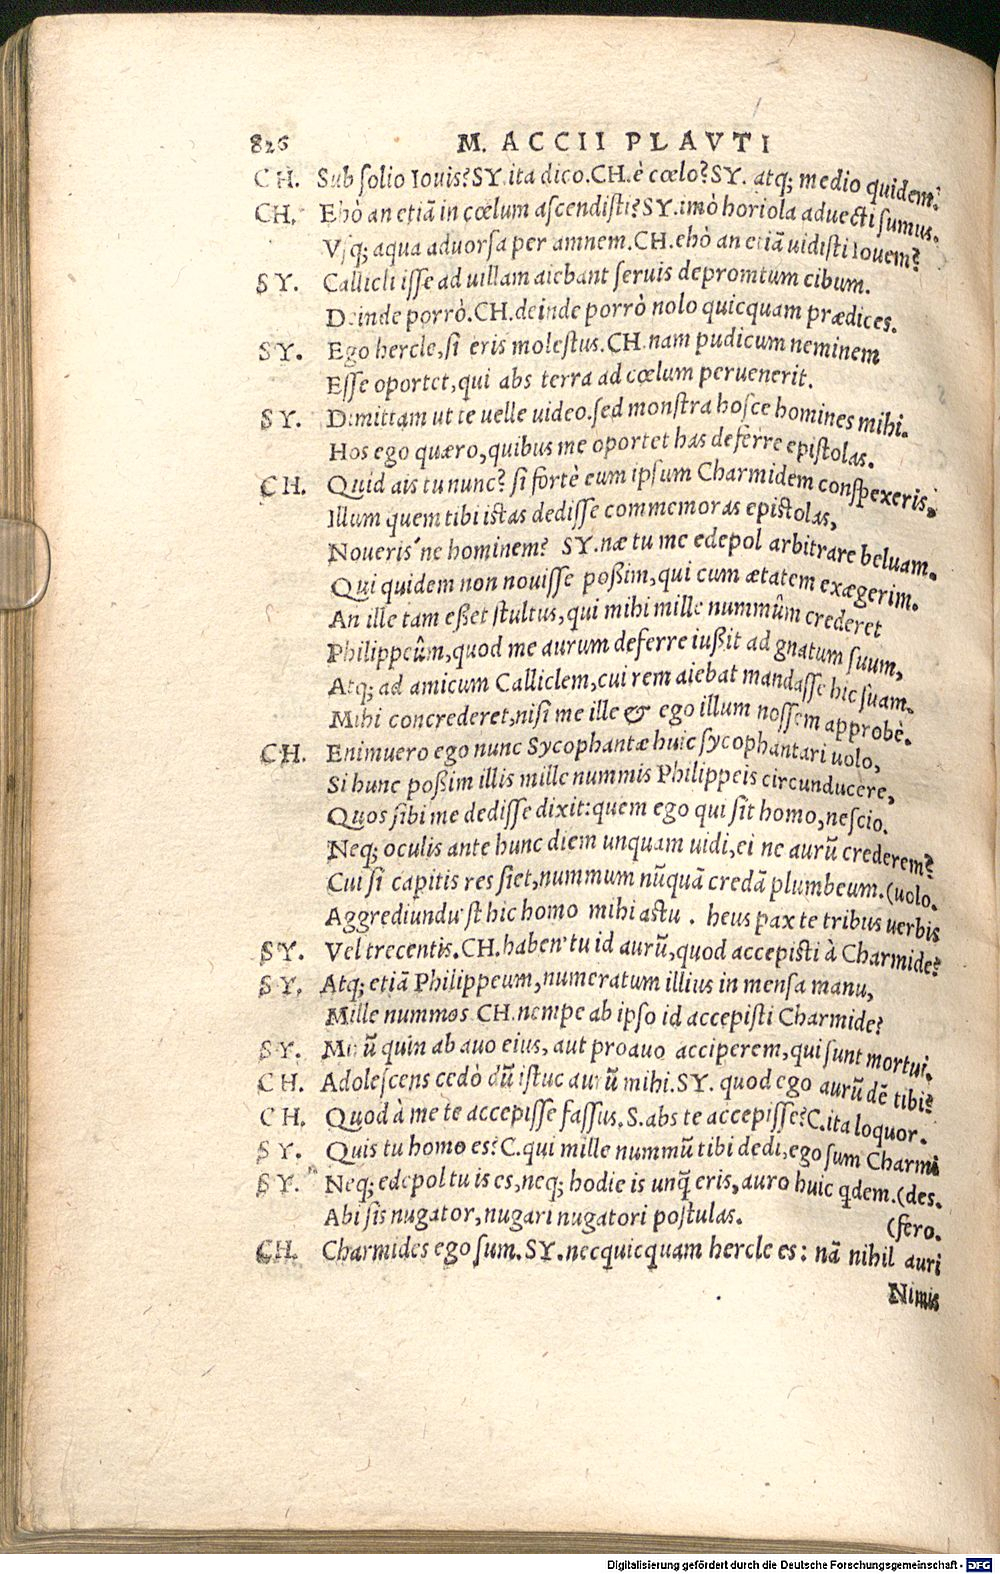 826 M. ACCII PLAVTI
CH. Sub solio Iouis? SY. ita dico. CH. è cœlo? SY. atq; medio quidem.
CH. Ehò an etiã in cœlum ascendisti? SY. imò horiola aduecti sumus.
Vsq; aqua aduorsa per amnem. CH. ehò an etiã uidisti Iouem?
SY. Callicli isse ad uillam aiebant seruis depromtum cibum.
Deinde porrò. CH. deinde porrò nolo quicquam prædices.
SY. Ego hercle, si eris molestus. CH. nam pudicum neminem
Esse oportet, qui abs terra ad cœlum peruenerit.
SY. Dimittam ut te uelle uideo. sed monstra hosce homines mihi.
Hos ego quæro, quibus me oportet has deferre epistolas.
CH. Quid ais tu nunc? si fortè eum ipsum Charmidem conspexeris,
Illum quem tibi istas dedisse commemoras epistolas,
Noueris'ne hominem? SY. næ tu me edepol arbitrare beluam.
Qui quidem non nouisse poßim, qui cum ætatem exægerim.
An ille tam eßet stultus, qui mihi mille nummûm crederet
Philippeûm, quod me aurum deferre iußit ad gnatum suum,
Atq; ad amicum Calliclem, cui rem aiebat mandasse hic suam.
Mihi concrederet, nisi me ille & ego illum nossem approbè.
CH. Enimuero ego nunc Sycophantæ huic sycophantari uolo,
Si hunc poßim illis mille nummis Philippeis circunducere,
Quos sibi me dedisse dixit: quem ego qui sit homo, nescio.
Neq; oculis ante hunc diem unquam uidi, ei ne aurũ crederem?
Cui si capitis res siet, nummum nũquã credã plumbeum. (uolo.
Aggrediundu'st hic homo mihi astu . heus pax te tribus uerbis
SY. Vel trecentis. CH. haben' tu id aurũ, quod accepisti à Charmide?
SY. Atq; etiã Philippeum, numeratum illius in mensa manu,
Mille nummos CH. nempe ab ipso id accepisti Charmide?
SY. Mirũ quin ab auo eius, aut proauo acciperem, qui sunt mortui.
CH. Adolescens cedò dũ istuc aurũ mihi. SY. quod ego aurũ dẽ tibi?
CH. Quod à me te accepisse fassus. S. abs te accepisse? C. ita loquor.
SY. Quis tu homo es? C. qui mille nummũ tibi dedi, ego sum Charmi
SY. Neq; edepol tu is es, neq; hodie is unq̃ eris, auro huic qdem. (des.
Abi sis nugator, nugari nugatori postulas. (fero.
CH. Charmides ego sum. SY. nec quicquam hercle es: nã nihil auri
Nimis
Digitalisierung gefördert durch die Deutsche Forschungsgemeinschaft - DFG